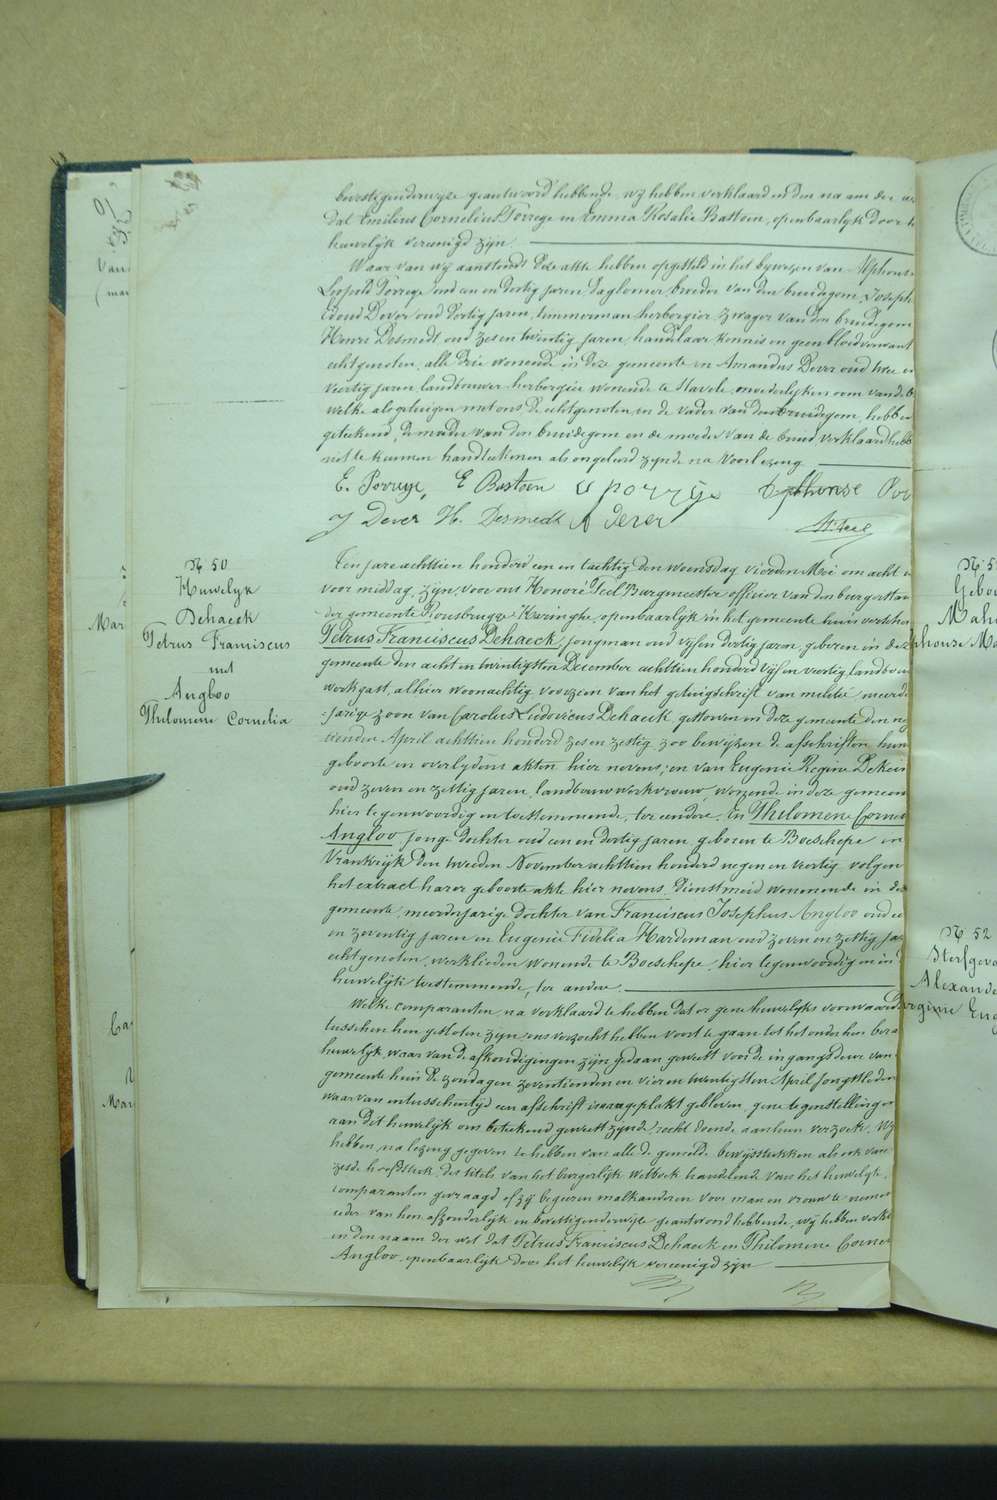 bevestigenderwijze geantwoord hebbende, wij hebben verklaard in den na am der
dat Emilius Cornelius Porreye en Emma Rosalie Bastoen, openbaarlijk door
huwelijk vereenigd zijn
Waar van wij aanstonds deze akte hebben opgesteld in het bijwezen van Alphonse
Leopold Porreye oud een en dertig jaren, broeder van den bruidegom, Joseph
Dever oud dertig jaren, timmerman herbergier, zwager van den bruidegom
Henri Desmedt oud zes en twintig jaren, handelaar kennis en geen bloedverwant
echtgenoten, alle drie wonende in deze gemeente en Amandus Dever oud twee en
veertig jaren landbouwer herbergier wonende te Stavele, moederlijken oom van de
welke als getuigen met ons de echtgenoten en de vader van den bruidegom, hebben
geteekend, de moeder van den bruidegom en de moeder van de bruid verklaard hebb
niet te kunnen handteekenen als ongeleerd zijnde na voorlezing
E. Porreye, E Bastoen C porreye Alphonse Por
J Dever H. Desmedt A Dever
N 50
Huwelijk
Dehaeck
Petrus Franciscus
met
Angloo
Philomene Cornelia
Ten jare achttien honderd een en tachtig den woensdag vierden Mei om acht u
voor middag, zijn, voor ons Honoré Teel Burgmeester officier van den burgerstan
der gemeente Rousbrugge Haringhe, openbaarlijk in het gemeente huis verschen
Petrus Franciscus Dehaeck, jongman oud vijf en dertig jaren, geboren in deze
gemeente den acht en twintigsten December achttien honderd vijf en veertig, landbouw
werkgast, alhier woonachtig voorzien van het getuigschrift van militie, meerder
jarige zoon van Carolus Ludovicus Dehaeck, gestorven in deze gemeente den neg
tienden April achttien honderd zes en zestig, zoo bewijzen de afschriften hun
geboorte en overlijdens akten hier nevens, en van Eugenie Regine Dekein
oud zeven en zestig jaren, landbouwwerkvrouw, wonende in deze gemeen
hier tegenwoordig en toestemmende, ter eendere, En Philomene Corne
Angloo jonge dochter oud een en dertig jaren geboren te Boeshepe in
Vrankrijk den tweeden November achttien honderd negen en veertig, volgen
het extract harer geboorte akte hier nevens, dienstmeid wonende in de
gemeente, meerderjarige dochter van Franciscus Josephus Angloo oud
en zeventig jaren en Eugenie Fidelia Hardeman oud zeven en zestig ja
echtgenoten, werklieden wonende te Boeshepe, hier tegenwoordig en in
huwelijk toestemmende, ter andere.
Welke comparanten, na verklaard te hebben dat er gene huwelijks voorwaarde
tusschen hen gesloten zijn, ons verzocht hebben voort te gaan tot het onder hen bera
huwelijk, waar van de afkondigingen zijn gedaan geweest voor de ingangsdeure van
gemeente huis de zondagen zeventienden en vier en twintigsten April jongstleden
waar van intusschentijd een afschrift is aangeplakt gebleven, gene tegenstellinge
aan dit huwelijk ons beteekend geweest zijnde, recht doende aan hun verzoek, Wij
hebben, na lezing gegeven te hebben van alle de gemelde bewijsstukken als ook van
zesde hoofdstuk des titels van het burgerlijk wetboek handelende van het huwelijk,
comparanten gevraagd of zij begeeren malkanderen voor man en vrouw te nemen
ieder van hen afzonderlijk en bevestigenderwijze geantwoord hebbende, wij hebben verkl
in den naam der wet dat Petrus Franciscus Dehaeck en Philomene Corne
Angloo, openbaarlijk door het huwelijk vereenigd zijn
Van
Mar
Mar
N 52
Sterfgeva
Alexande